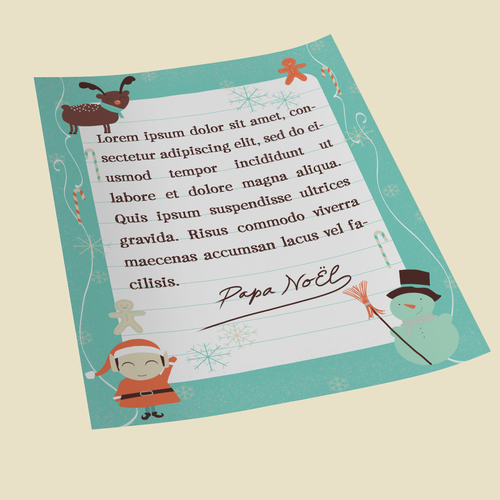 Lorem ipsum dolor sit amet, con-
sectetur adipiscing elit, sed do ei-
usmod tempor incididunt ut
labore et dolore magna aliqua.
Quis ipsum suspendisse ultrices
gravida. Risus commodo viverra
maecenas accumsan lacus vel fa-
cilisis.
Papa Noël